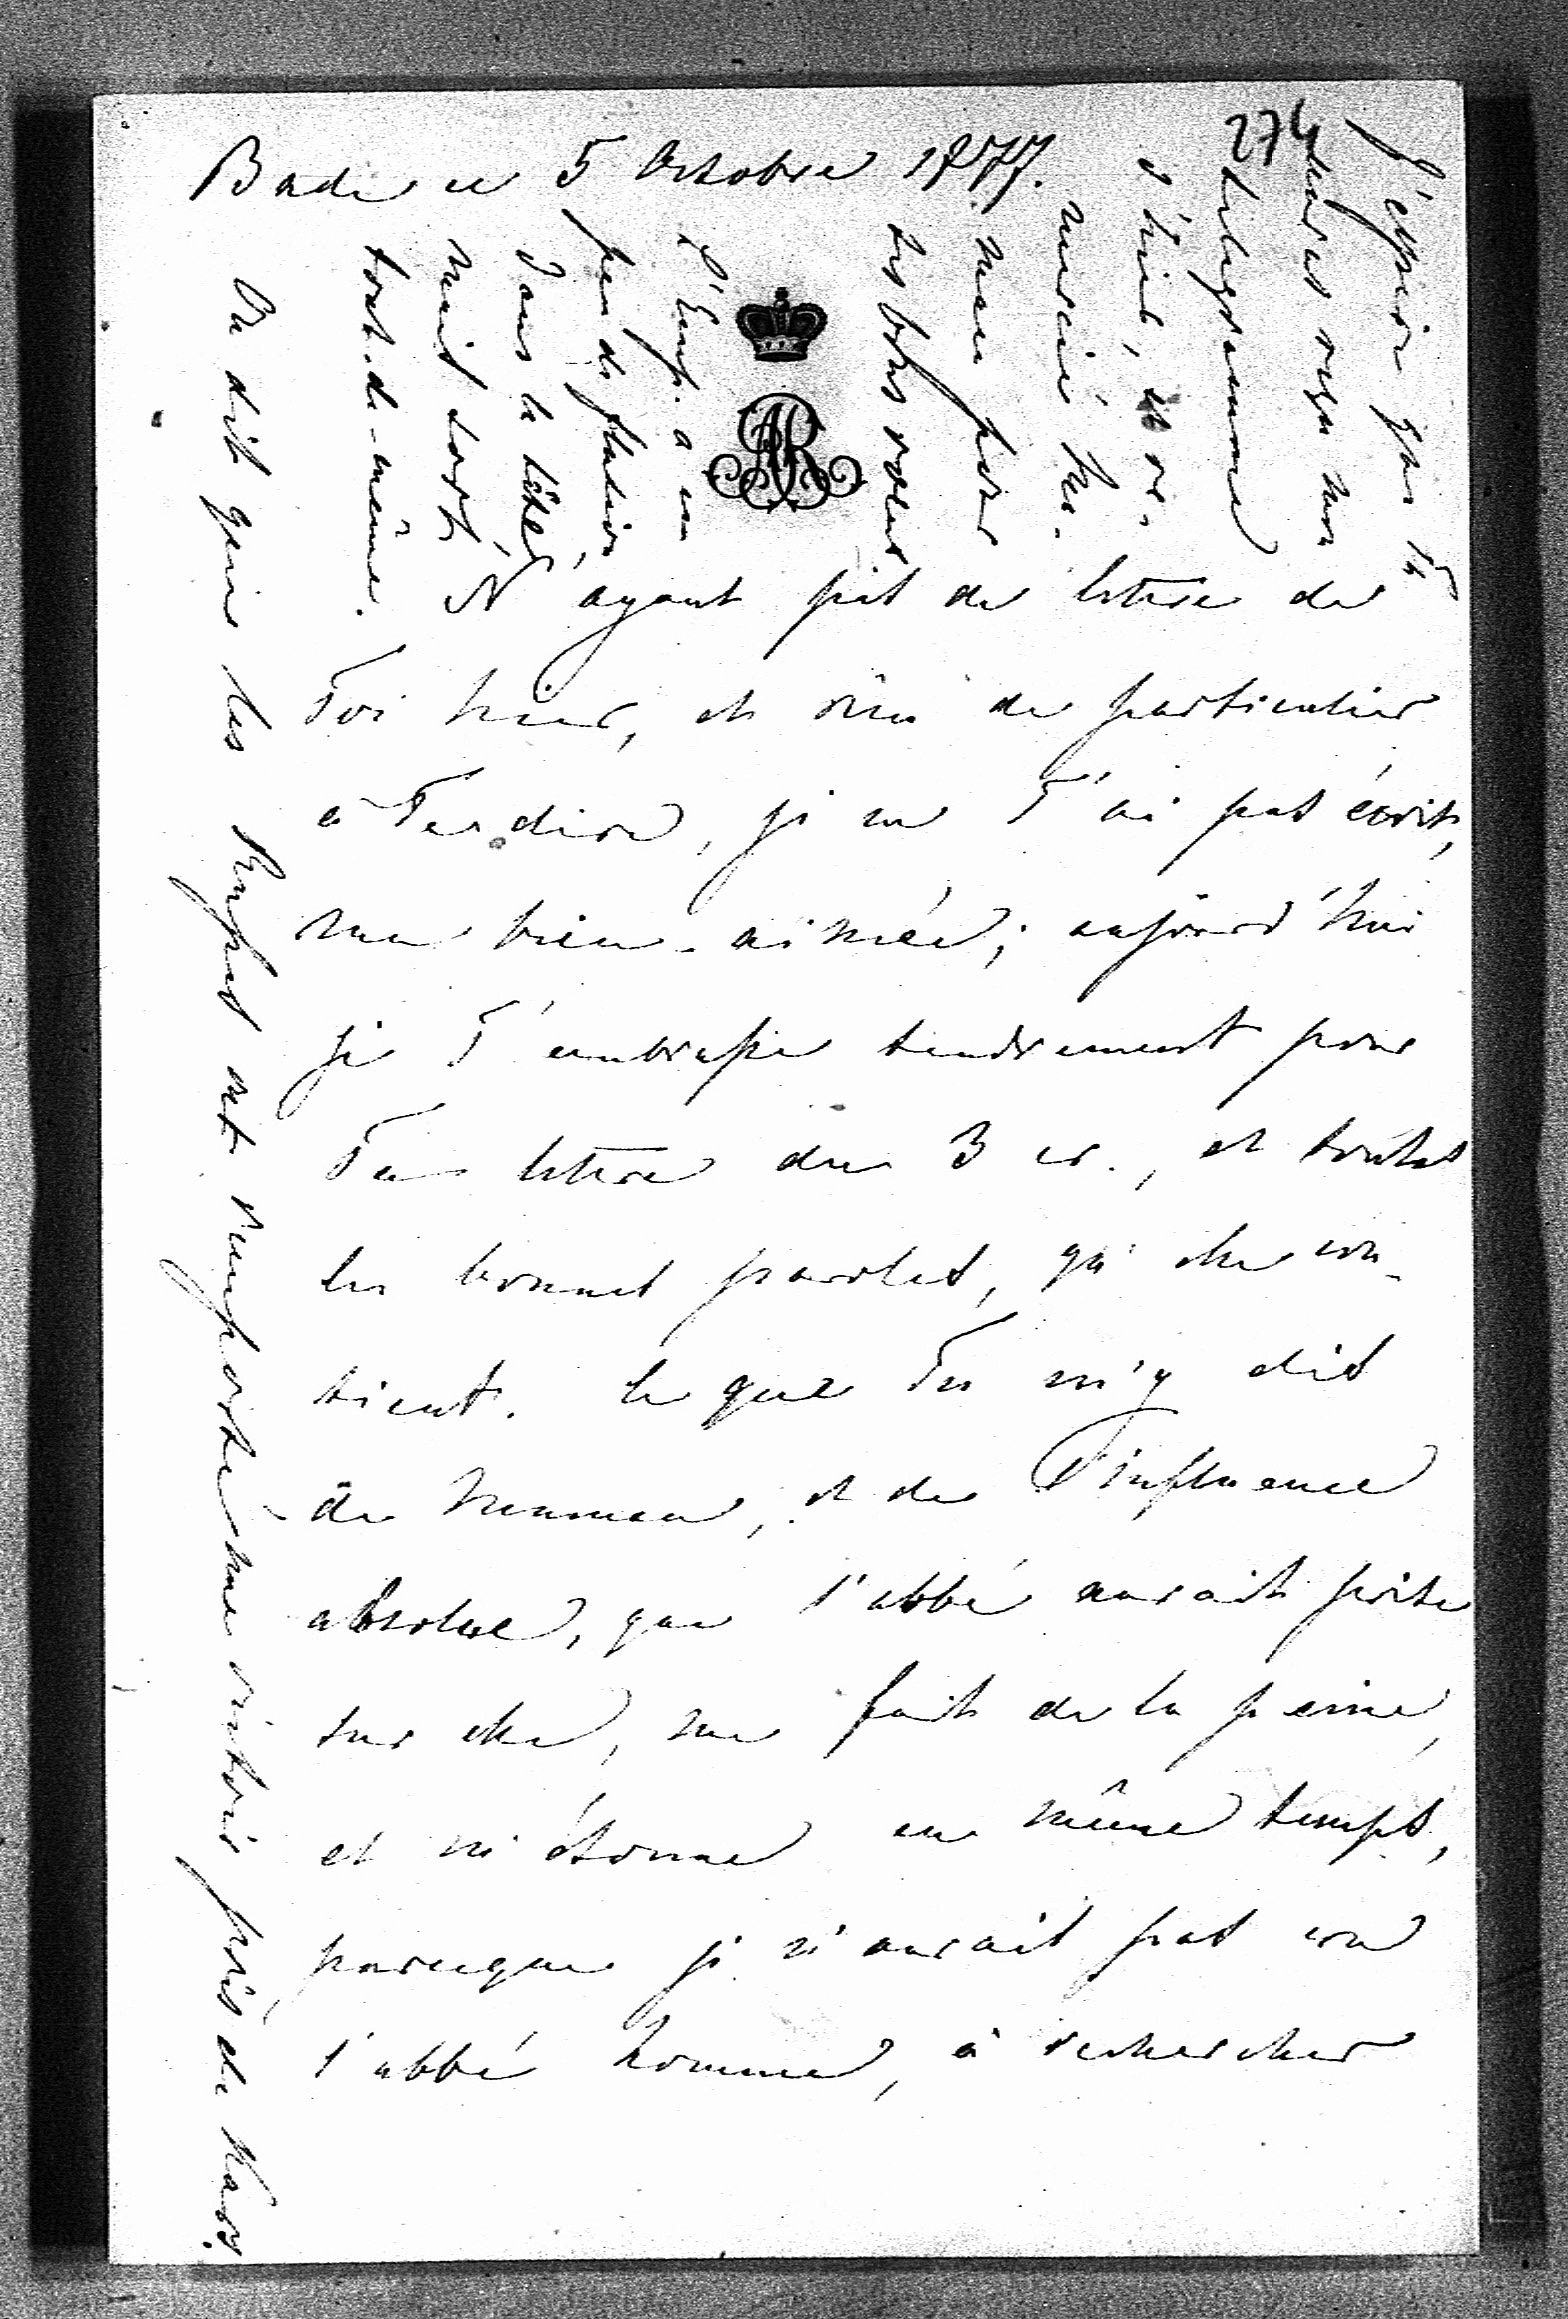 274
Bade ce 5 Octobre 1877.
N'ayant pas de lettre de
Toi hier, et rien de particulier
à Te dire, je ne T'ai pas écrit,
ma bien-aimée; aujourd'hui
je T'embrasse tendrement pour
Ta lettre du 3 cr., et toutes
les bonnes paroles, qu'elle con-
tient. Ce que Tu m'y dis
de et de l'influence
absolue, que l'abbé aurait prise
sur elle, me fait de la peine,
et m'étonne en même temps,
parceque je n'aurais pas cru
l'abbé homme, à rechercher
J'espère que Tu
auras reçu mon
télégramme
d'hier, et
remercié
mon
L'Emp. a un
peu de fluxion
dans la tête,
mais sort
tout-de-même.
On dit que les Russes ont remporté une victoire près de Kars.